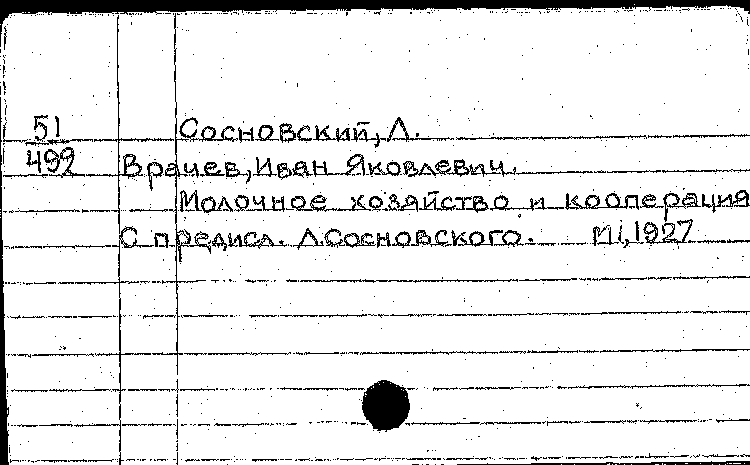 51 Сосновский, Л.
499 Врачев, Иван Яковлевич.
Молочное хозяйство и кооперация
С предисл. Л. Сосновского. 1927